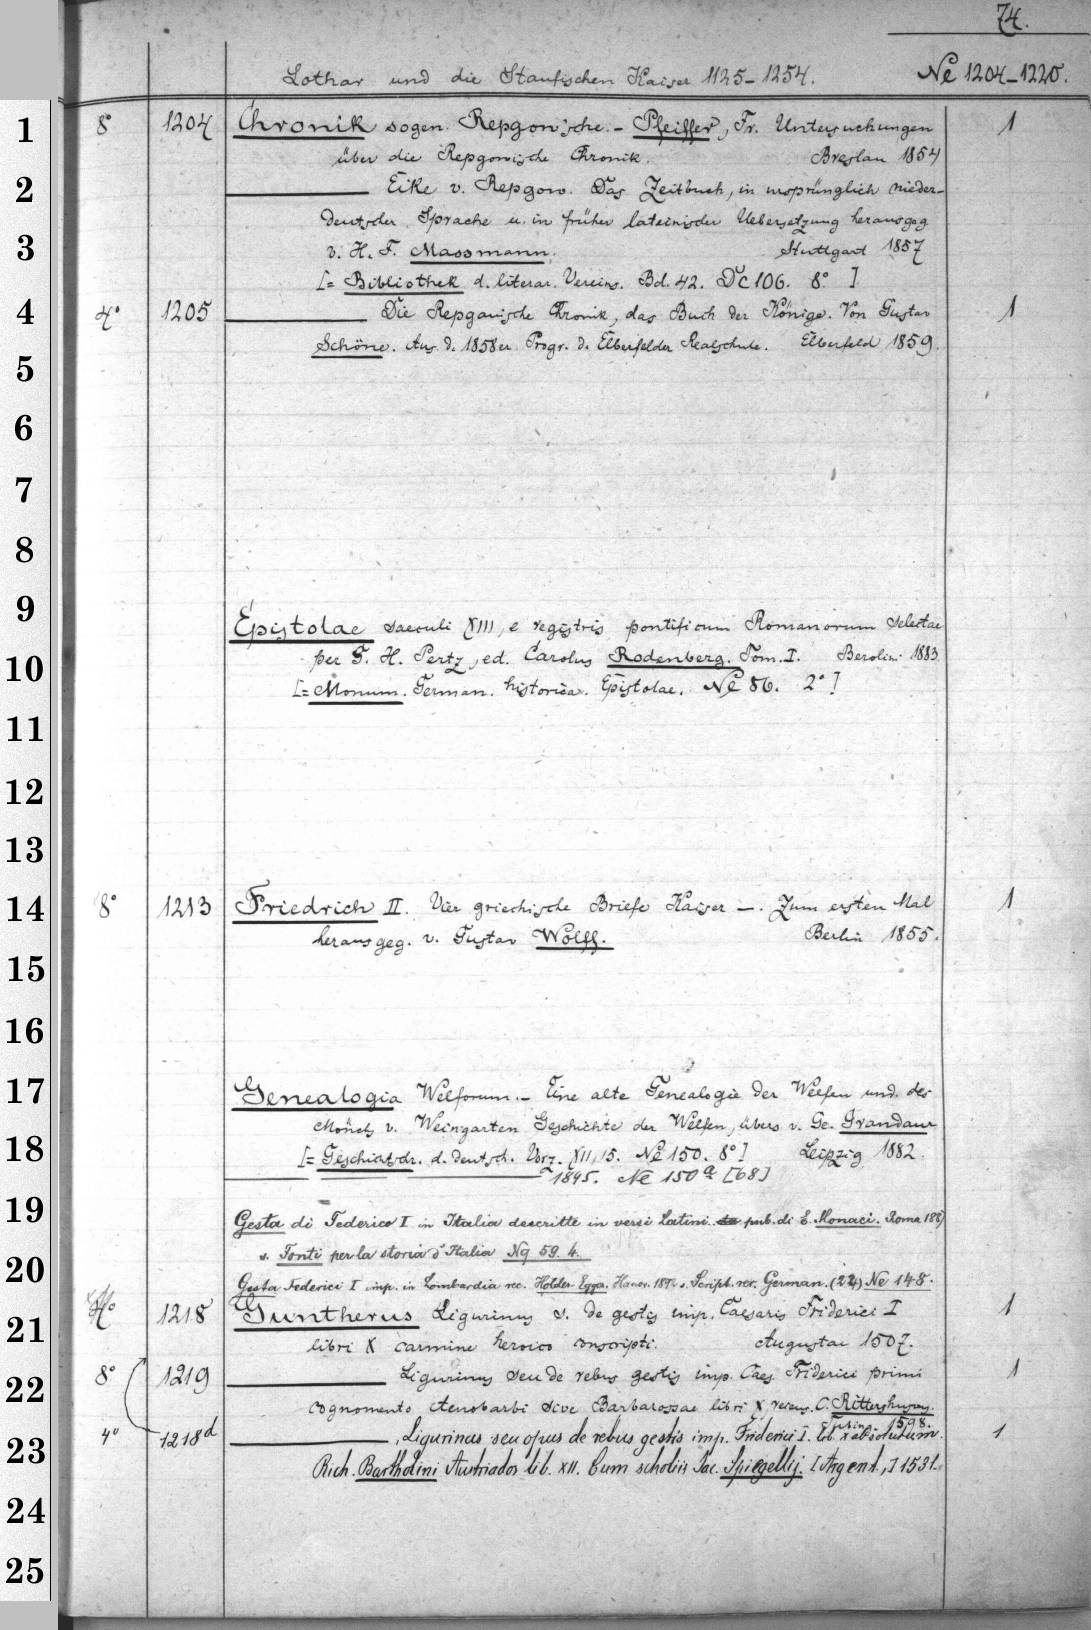 74.
Lothar und die Staufischen Kaiser 1125-1254. Ne 1204-1220.
1 8° 1204 Chronik sogen. Repgow'sche. - Pfeiffer, Fr. Untersuchungen 1
über die Repgowische Chronik. Breslau 1854
2 Eike v. Repgow. Das Zeitbuch, in ursprünglich nieder-
deutscher Sprache u. in früher lateinischer Uebersetzung herausgeg
3 v. H. F. Massmann. Stuttgart 1857
[= Bibliothek d. literar. Vereins. Bd. 42. Dc 106. 8° ]
4 4° 1205 Die Repgauische Chronik, das Buch der Könige. Von Gustav 1
Schöne. Aus d. 1858er Progr. d. Elberfelder Realschule. Elberfeld 1859.
5
6
7
8
9
Epistolae saeculi XIII, e registris pontificum Romanorum selectae
10 per G. H. Pertz, ed. Carolus Rodenberg. Tom. I. Berolini 1883
[= Monum. German. historica. Epistolae. Ne 86. 2° ]
11
12
13
14 8° 1213 Friedrich II. Vier griechische Briefe Kaiser —. Zum ersten Mal 1
herausgeg. v. Gustav Wolff. Berlin 1855.
15
16
17 Genealogia Welforum. - Eine alte Genealogie der Welfen und des
Mönchs v. Weingarten Geschichte der Welfen, übers. v. Ge. Grandaur
18 [= Geschichtschr. d. deutsch. Vorz. XII, 15. Ne 150. 8° ] Leipzig 1882.
1895. Ne 150a [68]
19 Gesta di Federico I in Italia descritte in versi Latini pub. di E. Monaci. Roma
s. Fonti per la storia d'Italia Nq 59. 4.
20 Gesta Federici I imp. in Lombardia rec. Holder-Egger. Hanov. 1892 s. Script. rer. German. (27) Ne 148.
4° 1218 Guntherus Ligurinus s. de gestis imp. Caesaris Friderici I 1
21 libri X carmine heroico conscripti. Augustae 1507.
22 8° 1219 Ligurinus seu de rebus gestis imp. Caes. Friderici primi 1
cognomento Aenobarbi sive Barbarossae libri X recens. C. Rittershusius.
Tubing. 1598.
23 4° 1218d , Ligurinus seu opus de rebus gestis imp. Friderici I. lib. X absolutum. 1
Rich. Bartholini Austriados lib. XII. Cum scholiis Jac. Spiegellij. [Argent.,] 1531.
24
25